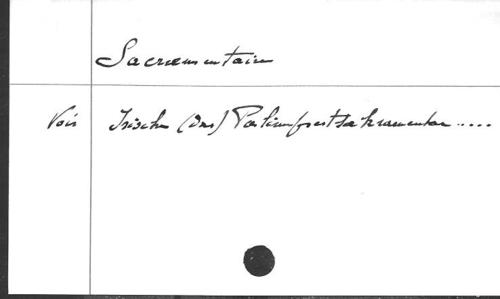 Sacramentaire
Voir Irische (Das) Palimpsestsakramentar .....